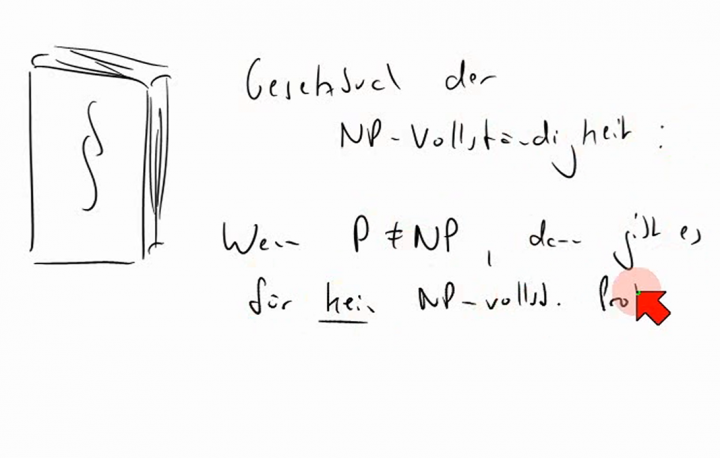 §
Gesetzbuch der
NP-Vollständigkeit:
Wenn P ≠ NP, dann gibt es
für kein NP-vollst. Pro